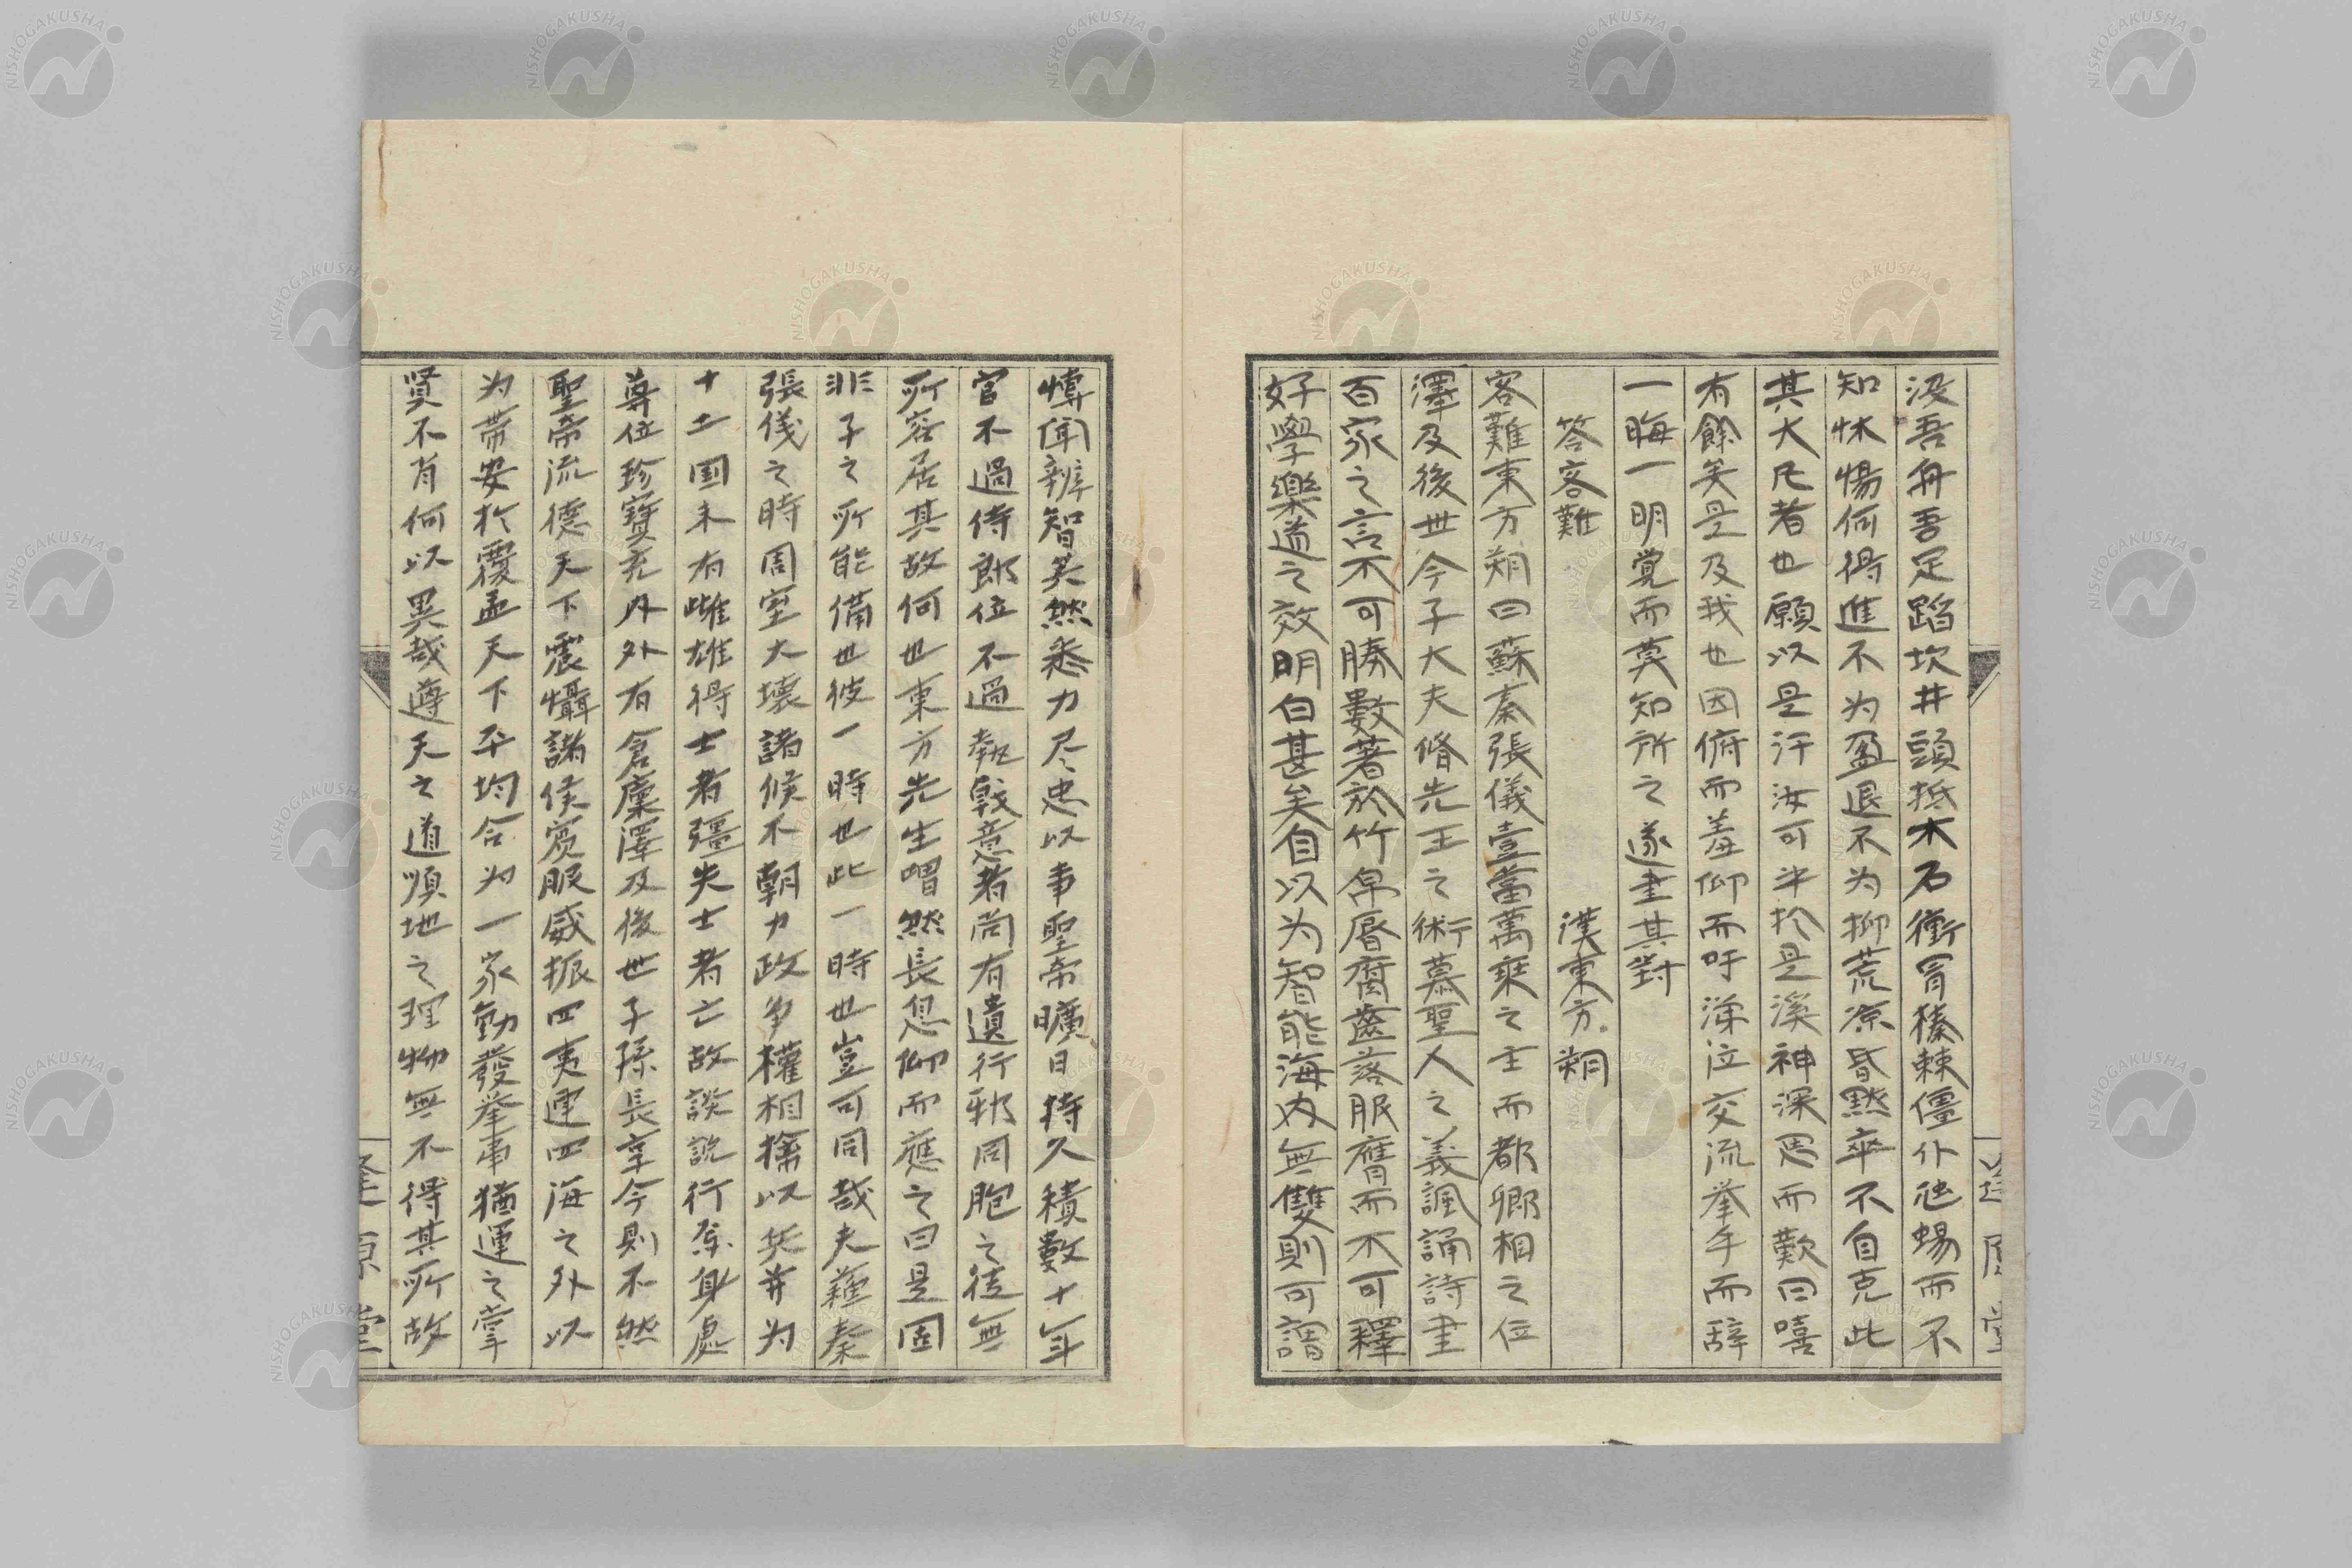 汲吾舟吾足蹈坎井頭抵木石衝冒榛棘僵仆虺蜴而不
知怵惕何得進不为盈退不为抑荒凉昏黙卒不自克此
其大凡者也願以是汙汝可半於是溪神深思而歎曰嘻
有餘矣是及我也因俯而羞仰而吁涕泣交流挙手而辞
一晦一明覚而莫知所之遂書其對
答客難　漢東方朔
客難東方朔曰蘇秦張儀壹當萬乗之主而都卿相之位
澤及後世今子大夫脩先王之術慕聖人之義諷誦詩書
百家之言不可勝數著於竹帛脣腐齒落服膺而不可釋
好學樂道之效明白甚矣自以为智能海内無雙則可謂
愽聞辨智矣然悉力尽忠以事聖帝曠日持久積數十年
官不過侍郎位不過執戟意者尚有遺行邪同胞之徒無
所容居其故何也東方先生喟然長息仰而應之曰是固
非子之所能備也彼一時也此一時也豈可同哉夫蘓秦
張儀之時周室大壊諸侯不朝力政争權相擒以兵并为
十二国未有雌雄得士者彊失士者亡故談説行焉身處
尊位珍寶充内外有倉廩澤及後世子孫長享今則不然
聖帝流德天下震懾諸侯賓服威振四夷連四海之外以
为帯安於覆盂天下平均合为一家動發挙事猶運之掌
賢不肖何以異哉遵天之道順地之理物無不得其所故